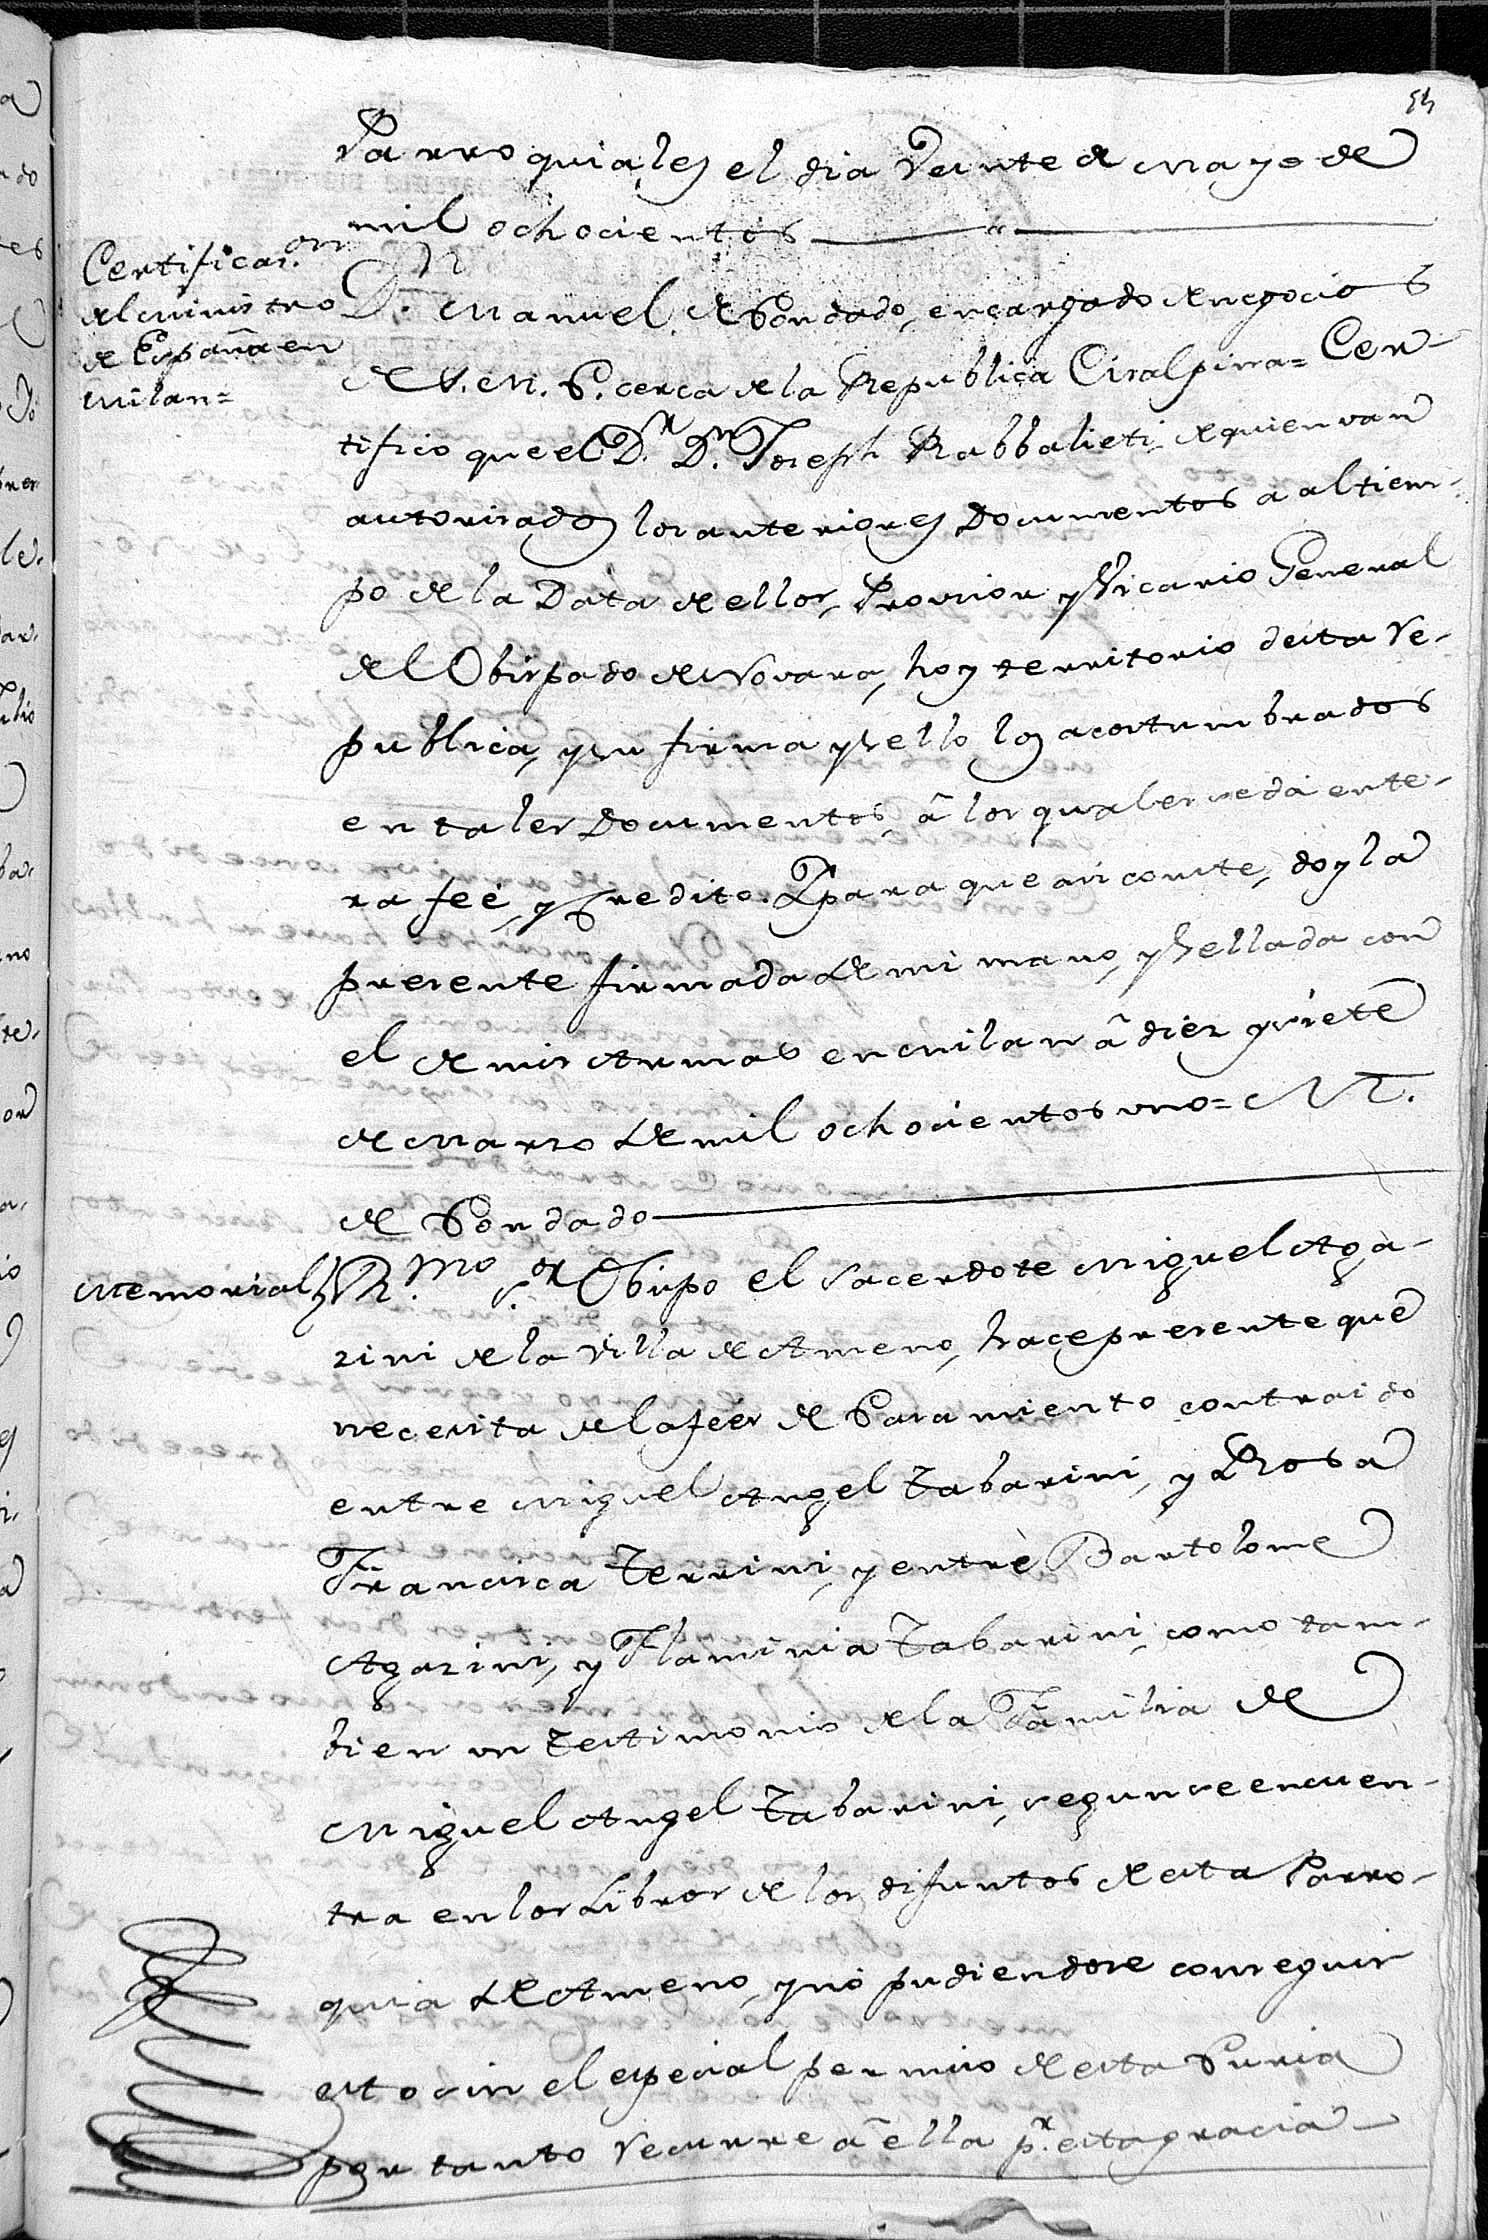 54
Parroquiales el dia Veinte de Mayo de
mil ochocientos
Certificaz.on
del Ministro
de España en
Milan=
Dn. Manuel de Condado, encargado de negocios
de S. M. C. cerca de la Republica Cisalpina= Cer-
tifico que el Dr. Dn. Joseph Rabbalieti, de quien van
autorisados los anteriores Documentos a al tiem-
po de la Data de ellos, Provisor y Vicario General
del Obispado de Novara, hoy territorio desta Re-
publica, y su firma y sello los acostumbrados
en tales Documentos, â los quales se dá ente-
ra feé, y Credito. Y para que asi conste, doy la
presente firmada de mi mano, y sellada con
el de mis Armas en Milan â diez y siete
de Marzo de mil ochocientos uno= M.
de Condado
Memorial
R.mo S.or Obispo el Sacerdote Miguel Aga-
zini de la Villa de Ameno, hace presente que
necesita de la feés de Casamiento contraido
entre Miguel Angel Tabarini, y Rosa
Francisca Terrini, y entre Bartolome
Agazini, y Flaminia Tabarini, como tam-
bien un testimonio de la Familia de
Miguel Angel Tabarini, segun se encuen-
tra en los Libros de los difuntos de esta Parro-
quia de Ameno, y no pudiendose conseguir
esto sin el especial permiso de esta Curia
por tanto recurre â ella pr. esta gracia